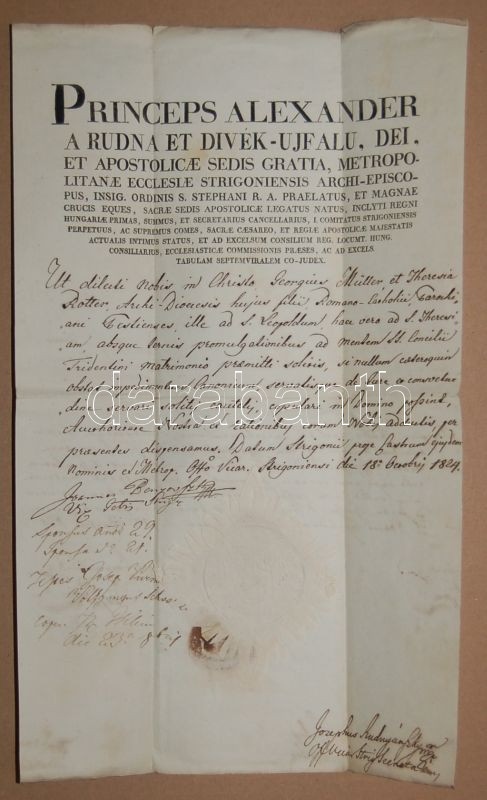 PRINCEPS ALEXANDER
A RUDNA ET DIVÉK-UJFALU, DEI,
ET APOSTOLICÆ SEDIS GRATIA, METROPO-
LITANÆ ECCLESIÆ STRIGONIENSIS ARCHI-EPISCO-
PUS, INSIG. ORDINIS S. STEPHANI R. A. PRAELATUS, ET MAGNAE
CRUCIS EQUES, SACRÆ SEDIS APOSTOLICÆ LEGATUS NATUS, INCLYTI REGNI
HUNGARIÆ PRIMAS, SUMMUS, ET SECRETARIUS CANCELLARIUS, I. COMITATUS STRIGONIENSIS
PERPETUUS, AC SUPREMUS COMES, SACRÆ CÆSAREO, ET REGIÆ APOSTOLICÆ MAJESTATIS
ACTUALIS INTIMUS STATUS, ET AD EXCELSUM CONSILIUM REG. LOCUMT. HUNG.
CONSILIARIUS, ECCLESIASTICÆ COMMISSIONIS PRÆSES, AC AD EXCELS.
TABULAM SEPTEMVIRALEM CO-JUDEX.
Ut dilecti nobis in Christo Georgius Müller et Theresia
Rotter Archi-Dioecesis hujus filii Romano-Catholici Parochi-
ani Pestienses, ille ad S. Leopoldum, haec vero ad S. Theresi-
am absque ternis promulgationibus ad mentem SS. Concilii
Tridentini matrimonio praemitti solitis, si nullum caeteroquin
obstet impedimentum Canonicum, servatis de jure a consvetu-
dine servari solitis, copulari in Domino possint,
Authoritate Nostra ex rationibus coram Nobis adductis, per
praesentes dispensamus. Datum Strigonii prope Castrum ejusdem
Nominis ex Metrop. Offo Vicar. Strigoniensi die 18a Octobris 1824.
Joannes
Sponsus annor 29
Sponsa 21.
Testes Josep
Wolfgangus
die 23
Josephus Rudnyánszky
darabanth